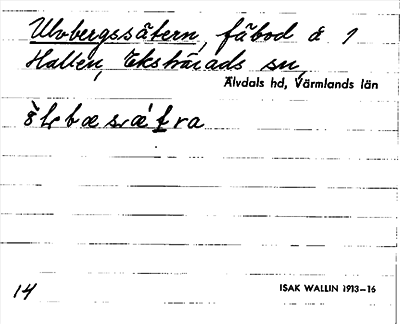 Ulvbergssätern, fäbod å 1
Hallen, Ekshärads sn,
Älvdals hd, Värmlands län
14
ISAK WALLIN 1913-16